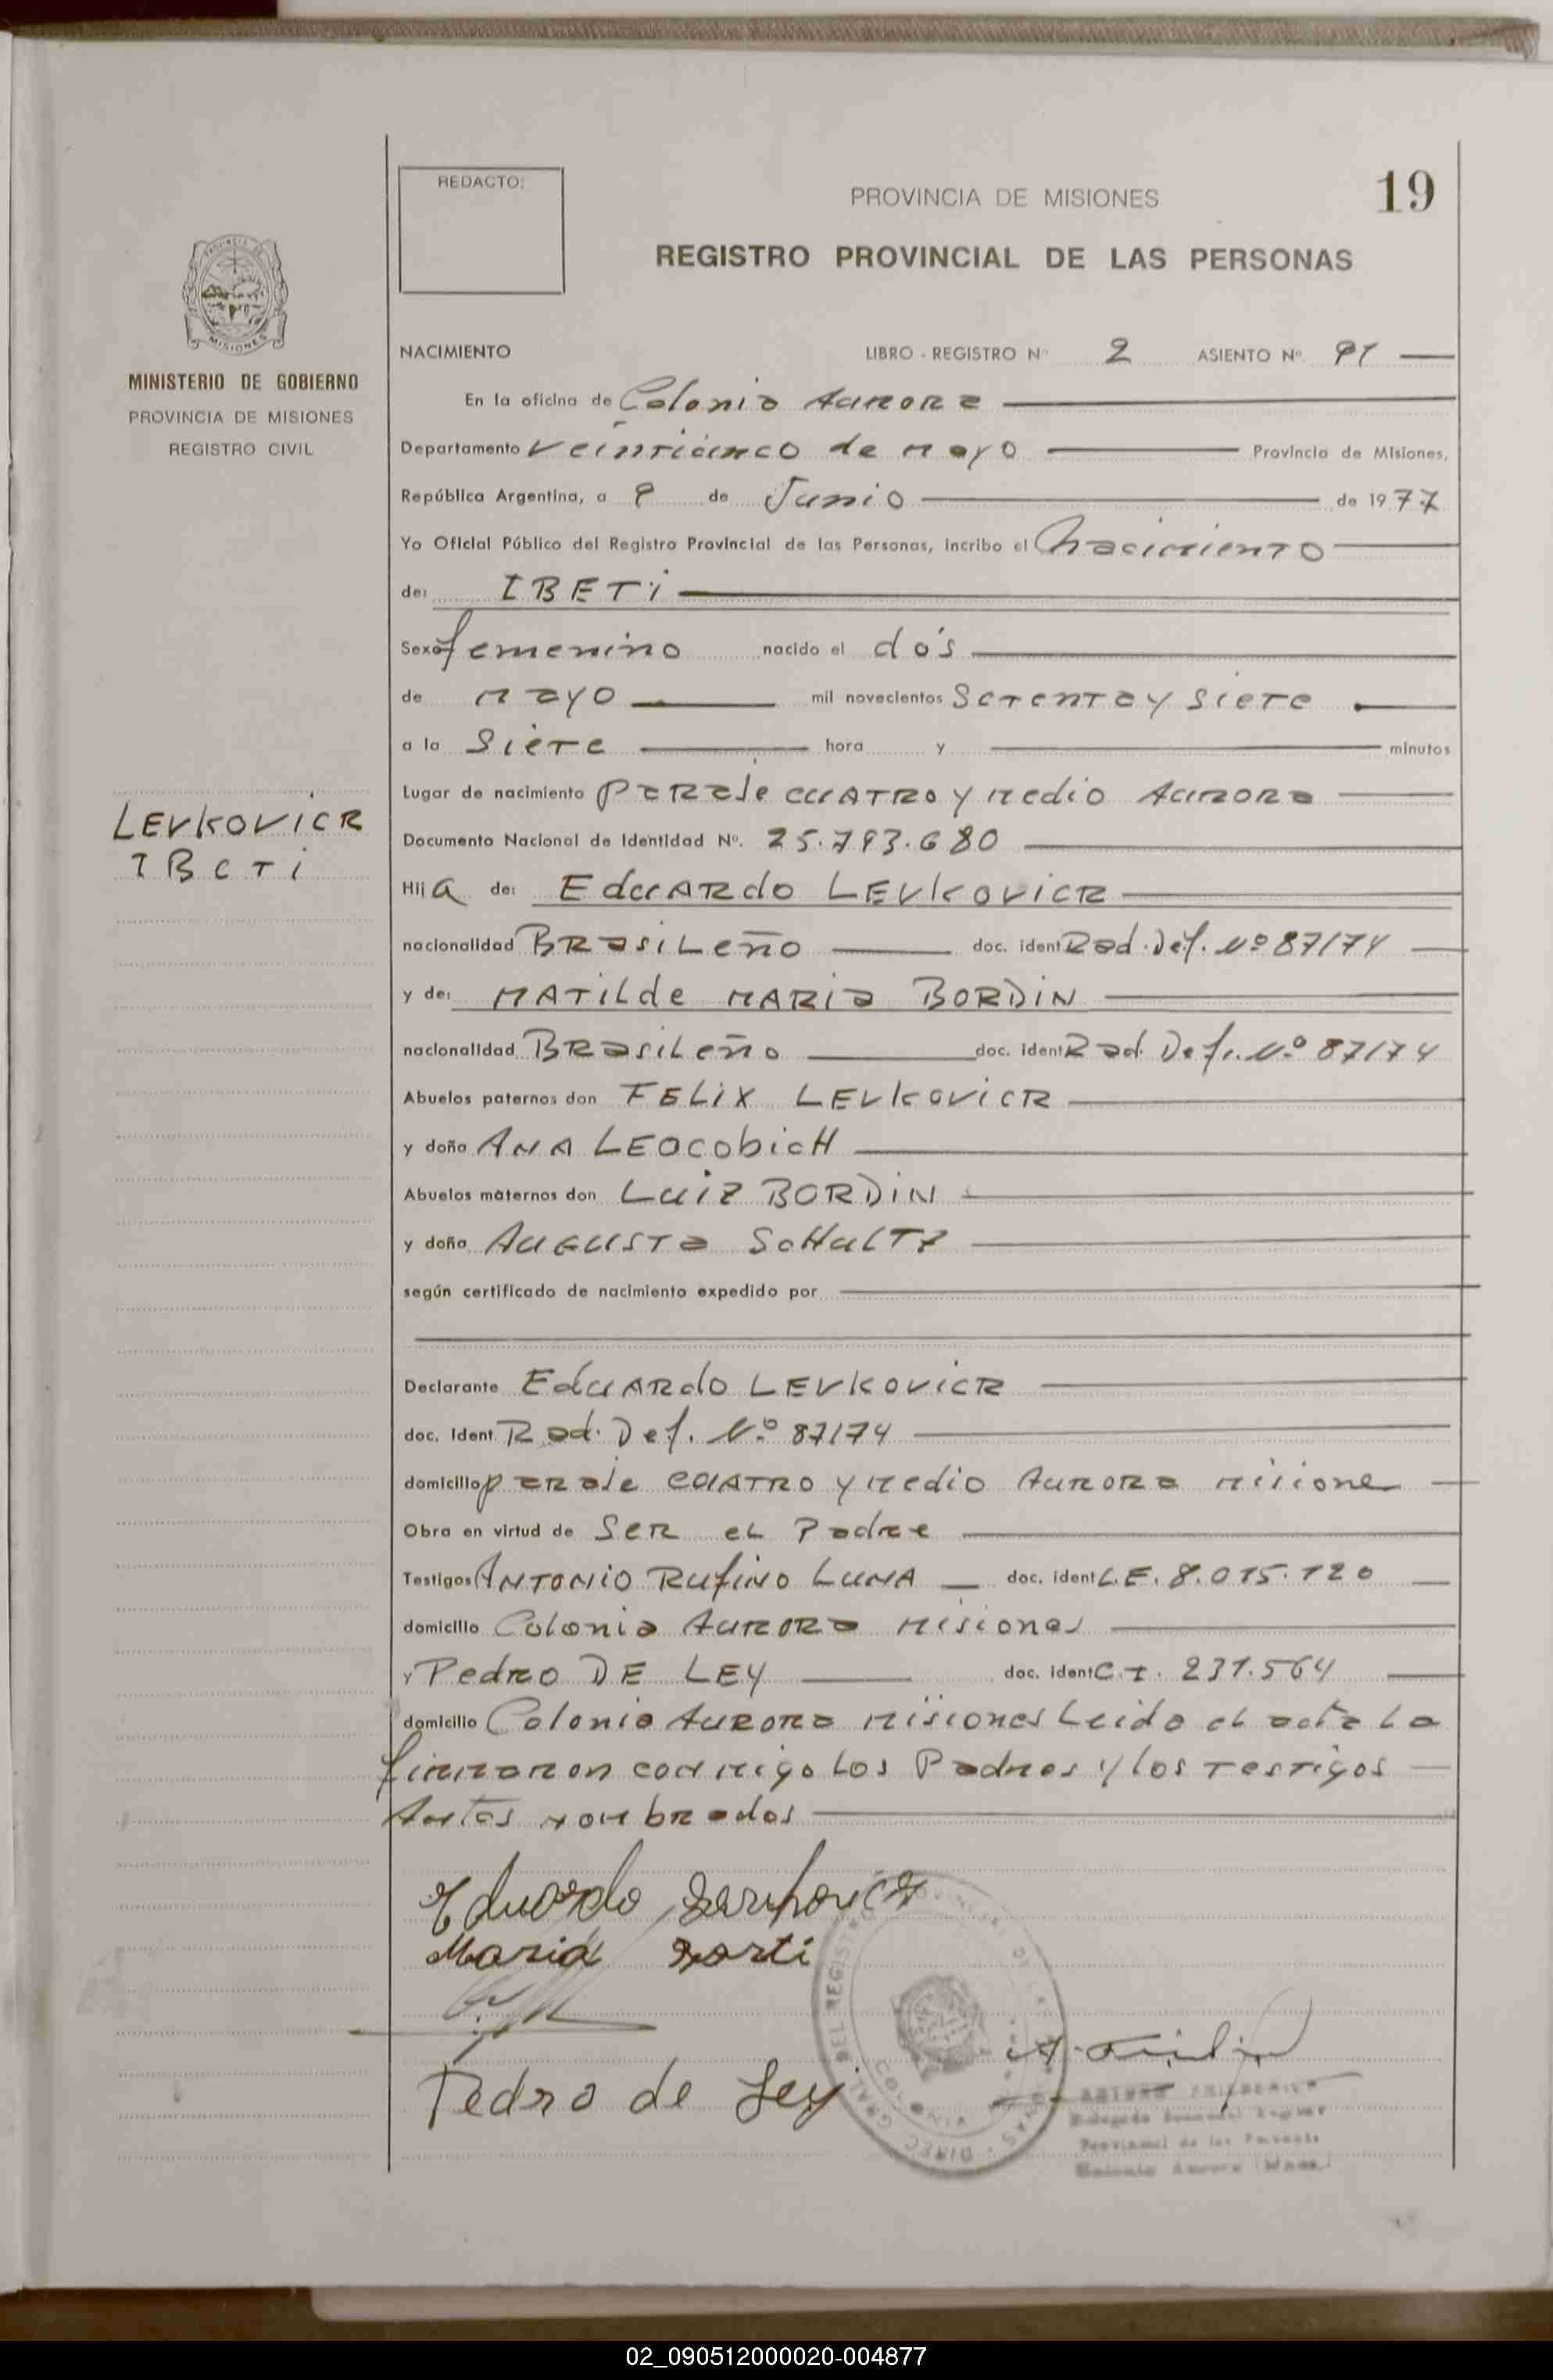 REDACTO:
PROVINCIA DE MISIONES
19
REGISTRO PROVINCIAL DE LAS PERSONAS
PROVINCIA DE
MISIONES
MINISTERIO DE GOBIERNO
PROVINCIA DE MISIONES
REGISTRO CIVIL
NACIMIENTO LIBRO - REGISTRO Nº 2 ASIENTO Nº 91
En la oficina de Colonia Aurora
Departamento Veinticinco de Mayo Provincia de Misiones,
República Argentina, a 9 de Junio de 1977
Yo Oficial Público del Registro Provincial de las Personas, incribo el Nacimiento
de: IBETi
Sexo femenino nacido el dos
de Mayo mil novecientos Setenta y Siete
a la Siete hora y minutos
Lugar de nacimiento Paraje cuATRo y Medio Aurora
LEVKOVICR
IBeTi
Documento Nacional de Identidad Nº. 25.793.680
Hija de: EduARdo LEVKOVICR
nacionalidad BRasiLeño doc. ident Rad. Def. Nº 87174
y de: MATiLde MARia BORDiN
nacionalidad BRasiLeño doc. ident Rad. Def. Nº 87174
Abuelos paternos don FELiX LEVKOVICR
y doña ANA LEOCObicH
Abuelos maternos don LuiZ BORDiN
y doña AuGuSTa ScHuLTZ
según certificado de nacimiento expedido por
Declarante EduARdo LEVKOVICR
doc. Ident Rad. Def. Nº 87174
domicilio paraje CuATRO y Medio Aurora Misione
Obra en virtud de SeR eL Padre
Testigos ANTONiO RufiNo LuNA doc. ident L.E. 8.015.120
domicilio Colonia Aurora Misiones
y Pedro DE LEY doc. ident C.I. 231.564
domicilio Colonia Aurora Misiones Leido el acta La
firmaron conmigo Los Padres y los Testigos
Antes nombrados
Eduardo
Maria
Pedro de Ley
DIREC. GRAL. DEL REGISTRO PROVINCIAL DE LAS PERSONAS
Colonia Aurora
02_090512000020-004877